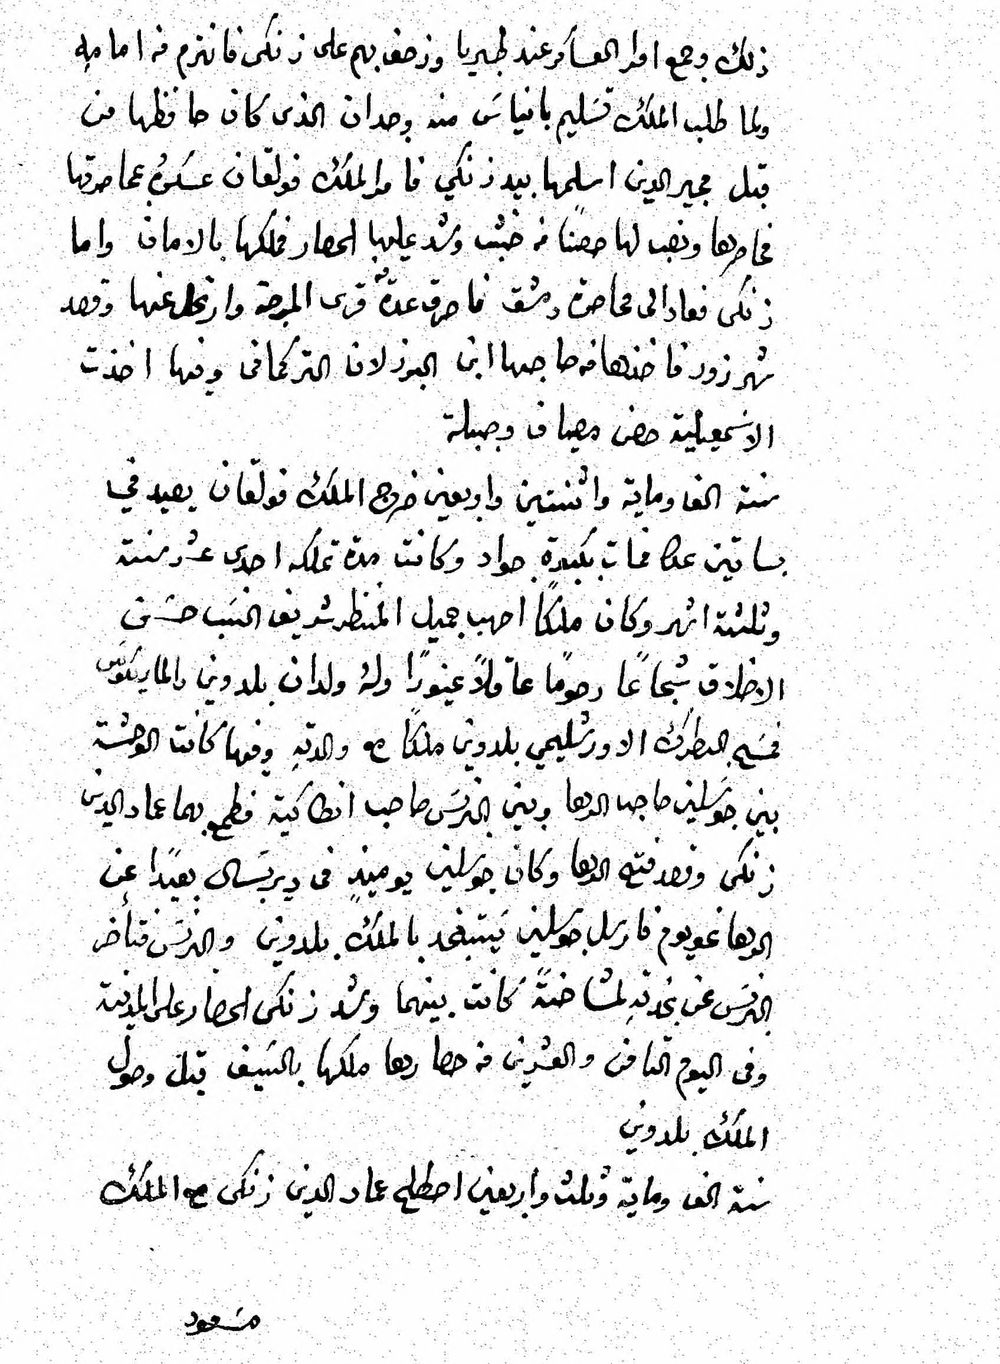 ذلك وجمع امرا العساكر عند طبريا وزحف بهم على زنكى فانهزم من امامهِ
ولما طلب الملك تسليم بانياس منه وجد ان الذى كان حافظها من
قبل مجير الدين اسلمها بيد زنكي فامر الملك فولقان عسكرهُ بمحاصرتها
فحاصرها ونصب لها حصنًا من خشب وشد عليها الحصار فملكها بالامان واما
زنكى فعاد الى محاصرة دمشق فاحرق عدّة قرى المرجة وارتحل عنها وقصد
شهرزور فاخذها من صاحبها ابن البوزلان التركمانى وفيها اخذت
الاسمعيلية حصن مصياف وجبلة
سنة الف وماية واثنتين واربعين خرج الملك فولقان يصيد في
بساتين عكا فمات بكبدة جواد وكانت مدة تملكه احدى عشر سنة
وثلثة اشهر وكان ملكًا اصهب جميل المنظر شريف النسب حسن
الاخلاق شجاعًا رحومًا عاقلاً غيورًا ولهُ ولدان بلدوين والماريكوس
فمسح البطرك الاورشليمي بلدوين ملكًا مع والدتهِ وفيها كانت الوحشة
بين جوسلين صاحب الرها وبين البرنس صاحب انطاكية فطمع بهما عماد الدين
زنكى وقصد فتح الرها وكان جوسلين يوميذٍ فى ديربسال بعيدًا عن
الرها نحو يوم فارسل جوسلين يستنجد بالملك بلدوين والبرنس فتأخر
البرنس عن نجدتهِ لمشاحنةً كانت بينهما وشد زنكى الحصار على المدينة
وفى اليوم الثامن والعشرين من حصارها ملكها بالسيف قبل وصول
الملك بلدوين
سنة الف وماية وثلث واربعين اصطلح عماد الدين زنكى مع الملك
مسعود